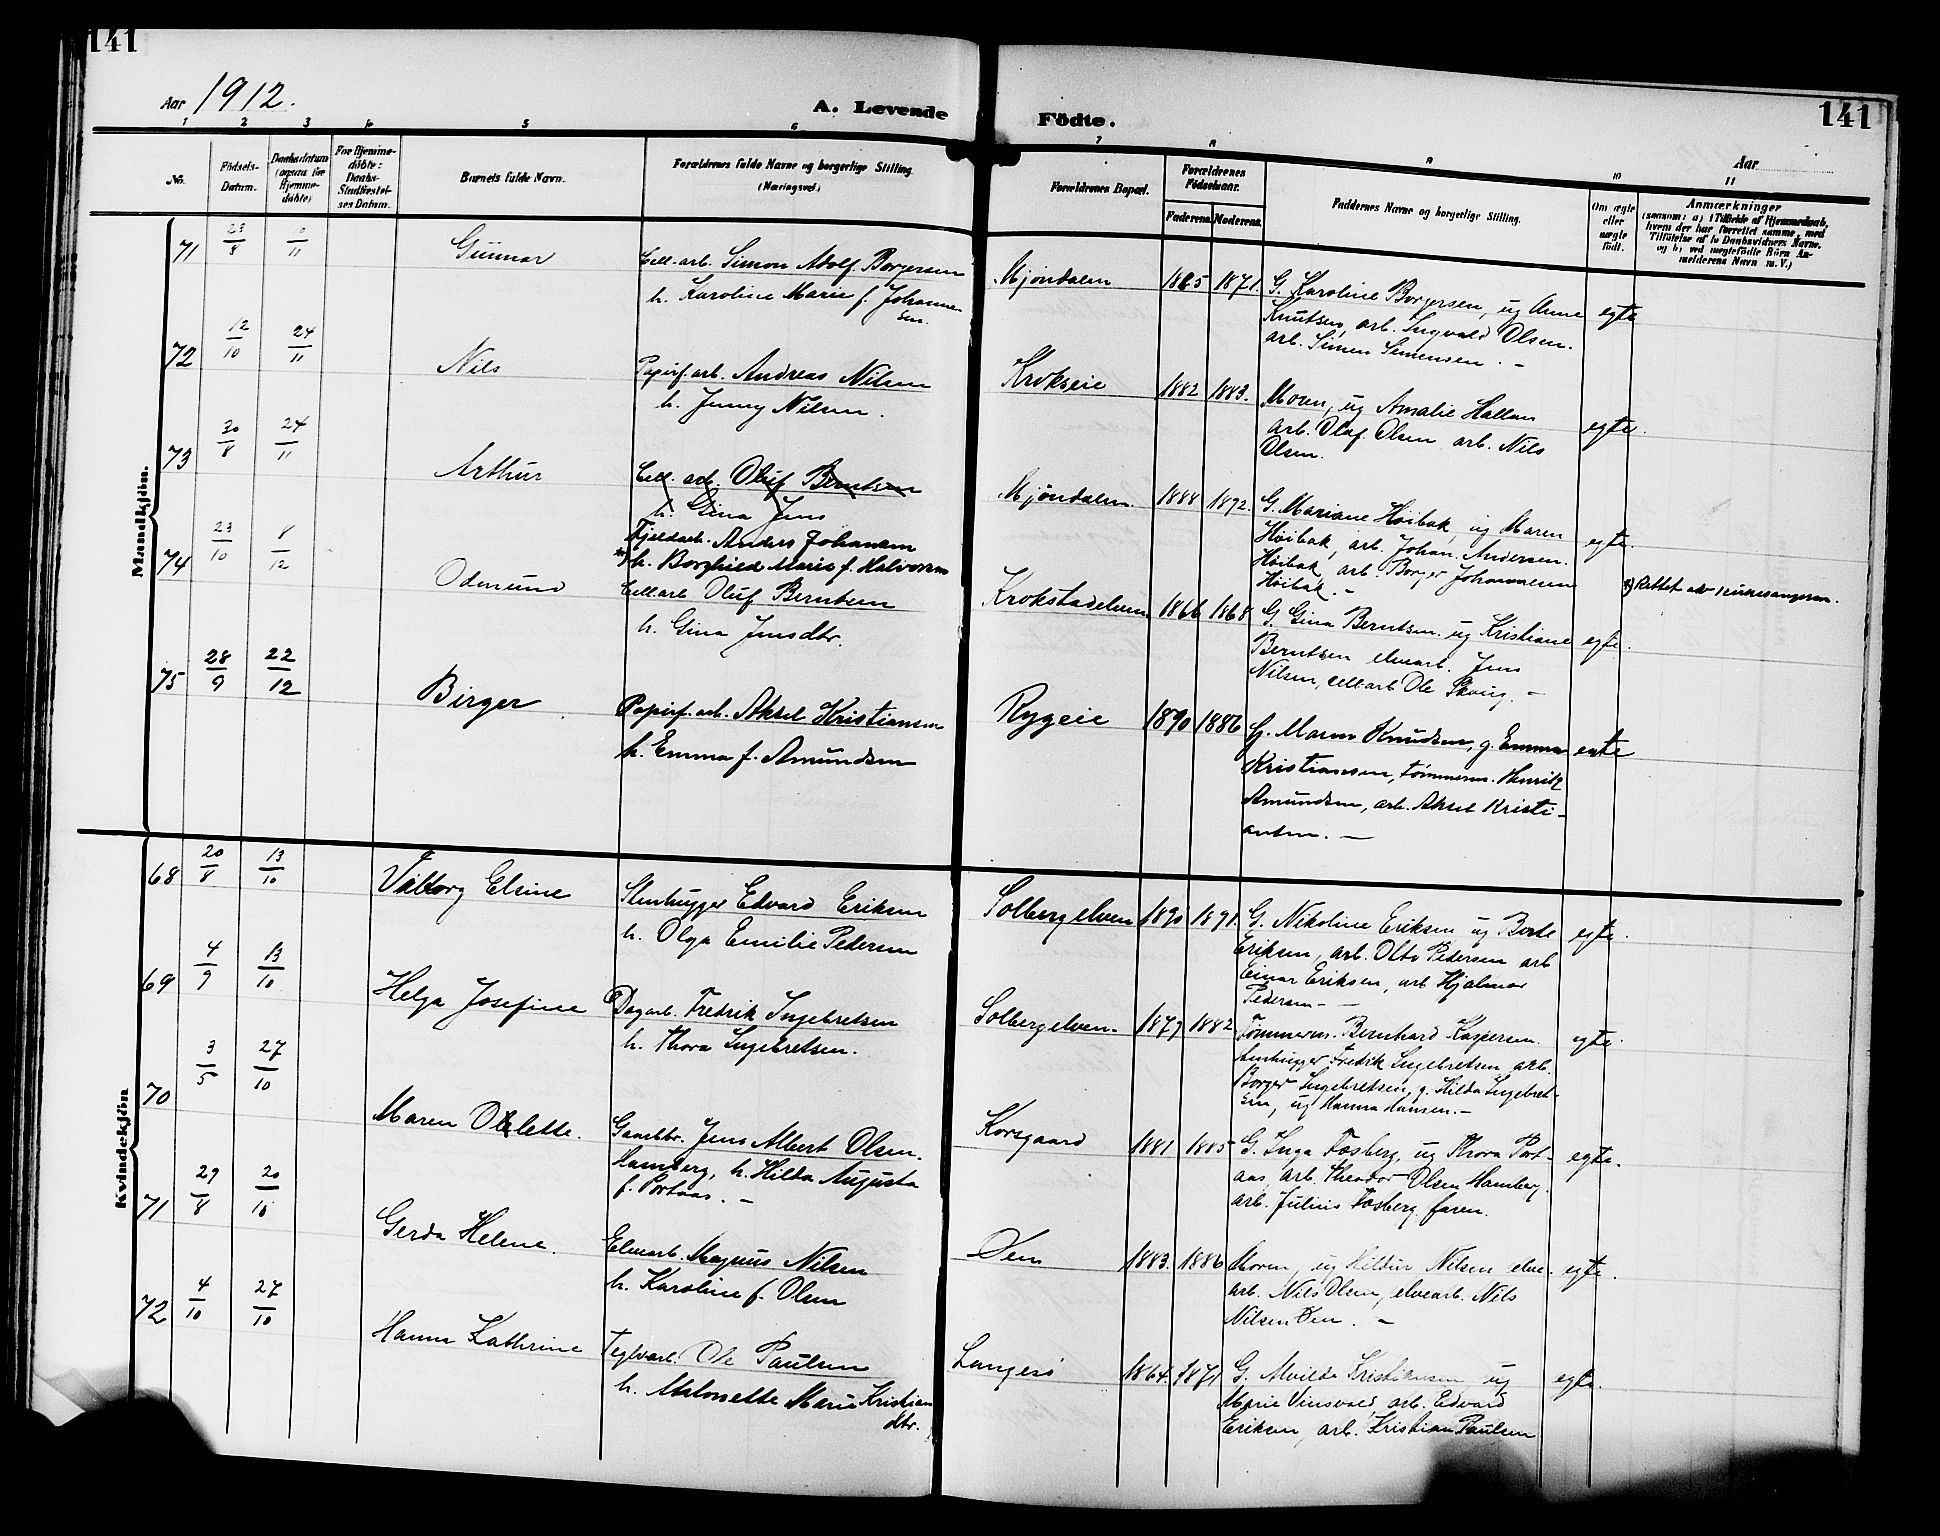 141
Aar 1912.
A. Levende
Födte.
141
Aar
1 2 3 4 5 6 7 8 9 10 11
No.
Födsels-
Datum.
Daabsdatum
(ogsaa for
Hjemme-
döbte)
For Hjemme-
döbte:
Daabs-
Stadfæstel-
ses Datum.
Barnets fulde Navn.
Forældrenes fulde Navne og borgerlige Stilling
(Næringsvei)
Forældrenes Bopæl.
Forældrenes
Födselsaar.
Faderens. Moderens.
Faddernes Navne og borgerlige Stilling.
Om ægte
eller
uægte
födt.
Anmærkninger
(saasom: a) i Tilfælde af Hjemmedaab,
hvem der har forrettet samme, med
Tilföielse af to Daabsvidners Navne.
og b) ved uægtefödte Börn An-
melderens Navn m. V.)
Mandkjön.
71 23/8 10/11 Gunnar
Cell. arb. Simon Adolf Borgersen
h. Karoline Marie f. Johanne-
sen.
Mjøndalen 1865 1871.
G. Karoline Borgersen, ug Anne
Knutsen, arb. Ingvald Olsen.
arb. Simen Simensen. -
egte
72 12/10 24/11 Nils
Papirf. arb. Andreas Nilsen
h. Jenny Nilsen.
Krokseie 1882 1883.
Moren, ug Amalie Hallan
arb. Olaf Olsen, arb. Nils
Olsen.
egte.
73 30/8 24/11 Arthur
Cell. arb. Oluf Berntsen
h. Gina Jens
Fjeldarb. Anders Johansen
*) h. Borghild Marie f. Halvorsen
Mjøndalen. 1888 1892.
G. Mariane Høibak, ug Maren
Høibak, arb. Johan Andersen
Høibak, arb. Borger Johannesen
Høibak. -
egte.
*) Rettet av kirkesangeren.
74 23/10 8/12 Odmund
Cellarb Oluf Berntsen
h. Gina Jensdtr.
Krokstadelven 1866 1868
G. Gina Berntsen. ug Kristiane
Berntsen elvearb. Jens
Nilsen, cellarb Ole Skoug. -
egte.
75 28/9 22/12 Birger
Papirf. arb. Aksel Kristiansen
h. Emma f. Amundsen
Rygeie 1890 1886
G. Maren Knudsen, g. Emma
Kristiansen, tømmerm. Henrik
Amundsen, arb. Aksel Kristi-
ansen. -
egte
Kvindekjön
68 20/8 13/10 Valborg Elsine
Stenhugger Edvard Eriksen
h. Olga Emilie Pedersen
Solbergelven 1890 1891.
G. Nikoline Eriksen ug Borte
Eriksen, arb. Otto Pedersen arb
Einar Eriksen, arb Hjalmar
Pedersen -
egte.
69 4/9 13/10 Helga Josefine
Dagarb. Fredrik Ingebretsen
h. Thora Ingebretsen.
Solbergelven. 1879 1882
Tømmerm. Bernhard Kaspersen
stenhugger Fredrik Ingebretsen arb.
Borger Ingebretsen, g. Hilda Ingebret-
sen, ug Hanna Hansen. -
egte.
70 3/5 27/10 Maren Ollette.
Gaardbr. Jens Albert Olsen
Hamberg, h. Hilda Augusta
f. Portaas. -
Korsgaard 1881 1885
G. Inga Fosberg, ug Thora Port-
aas, arb. Theodor Olsen Hamberg.
arb. Julius Fosberg. faren.
egte.
71 29/8 20/10 Gerda Helene.
Elvearb. Magnus Nilsen
h. Karoline f. Olsen
Øen 1883. 1886
Moren, ug Hildur Nilsen elve-
arb. Nils Olsen, elvearb. Nils
Nilsen Øen. -
egte.
72 4/10 27/10 Hanna Kathrine
Teglvarb. Ole Paulsen
h. Antonette Marie Kristian
dtr.
Langesø 1864. 1871
G. Alvilde Kristiansen ug
Marie Vinsvold, arb. Edvard
Eriksen, arb. Kristian Paulsen
egte.